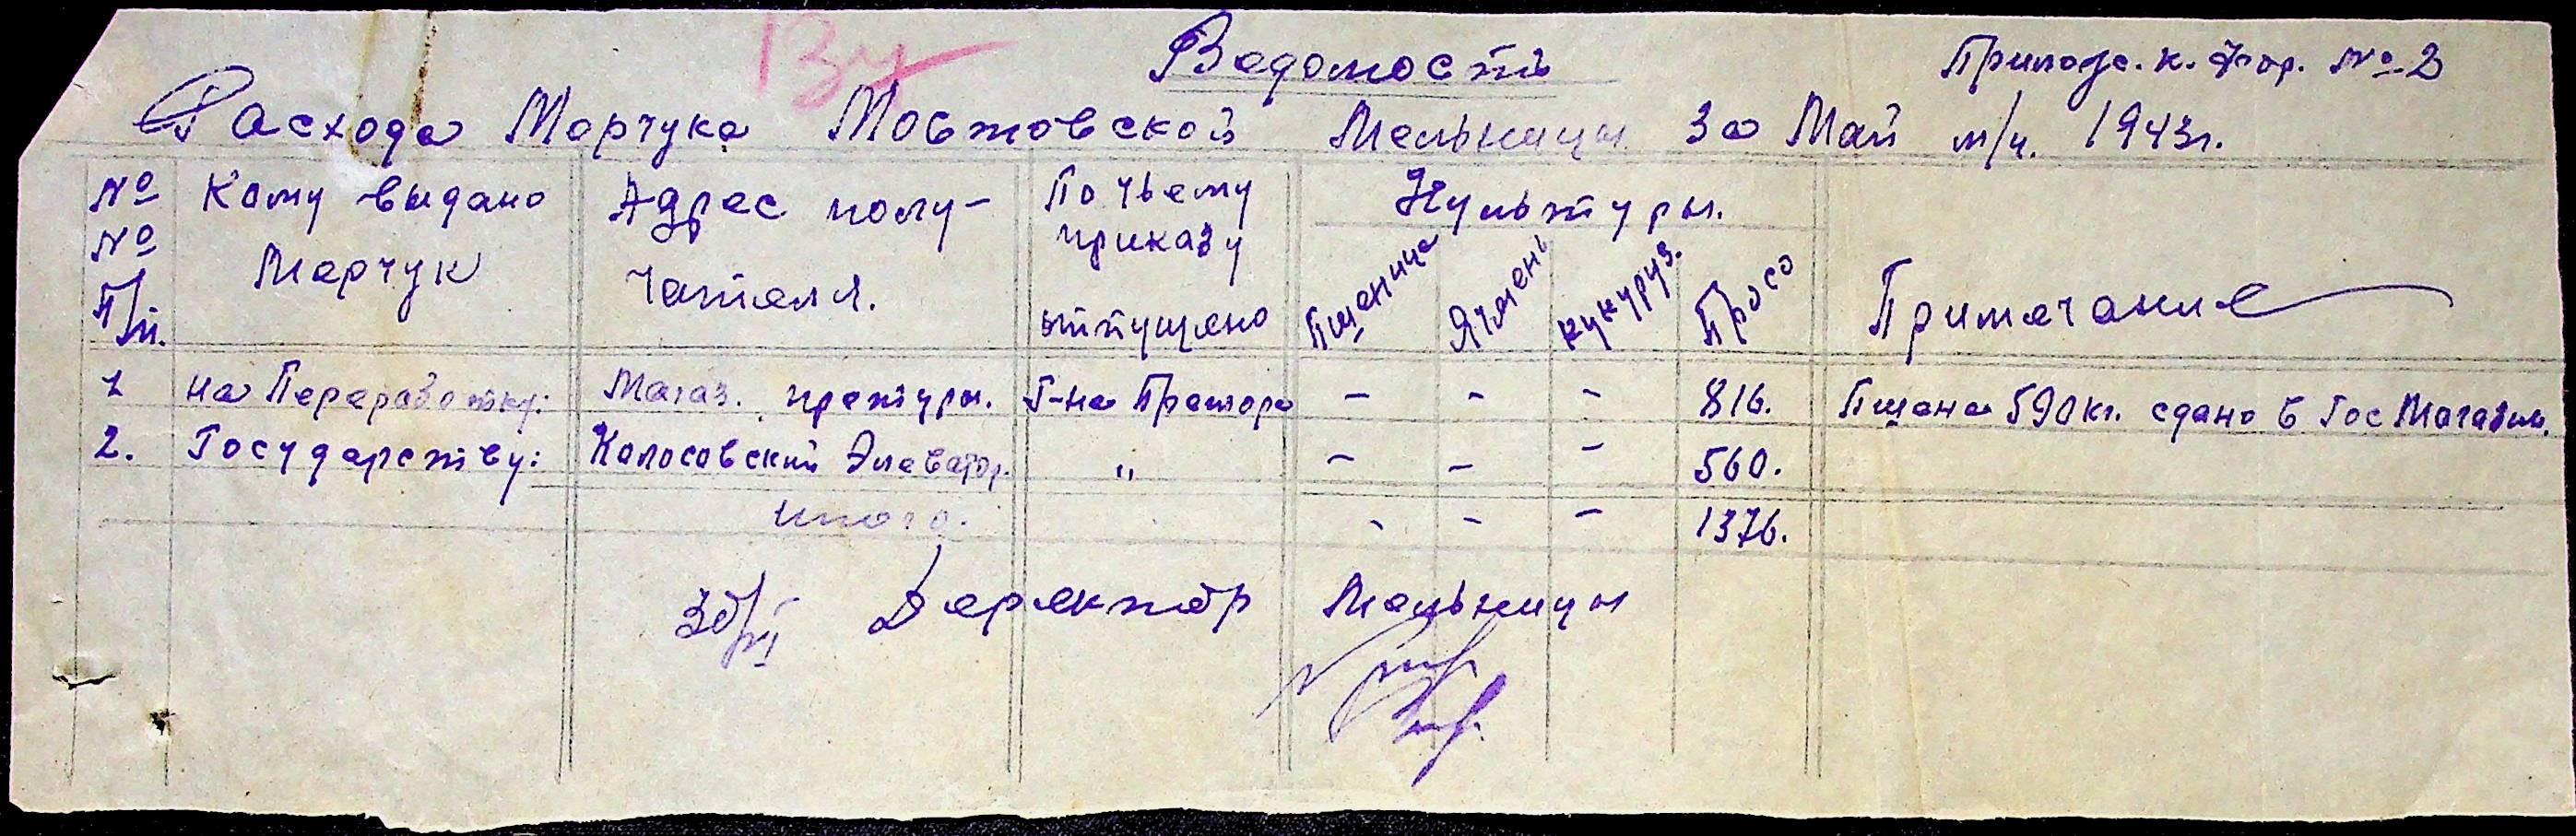 13у
Ведомость
Прилож. к. Фор. № 2
Расхода Марчука Мостовской Мельницы за Май м/ц. 1943г.
№ № п/п. | Кому выдано Марчук | Адрес полу-чателя. | По чьему приказу отпущено | Культуры. | Примечание
Пшеница | Ячмень | кукуруз. | Просо
1 | на Переработку: | Магаз. претуры. | Г-на Претора | - | - | - | 816. | Пшена 590 кг. сдано в Гос Магазин.
2. | Государству: | Колосовский Элеватор. | " | - | - | - | 560.
итого. | - | - | - | 1376.
Деректор Мельницы